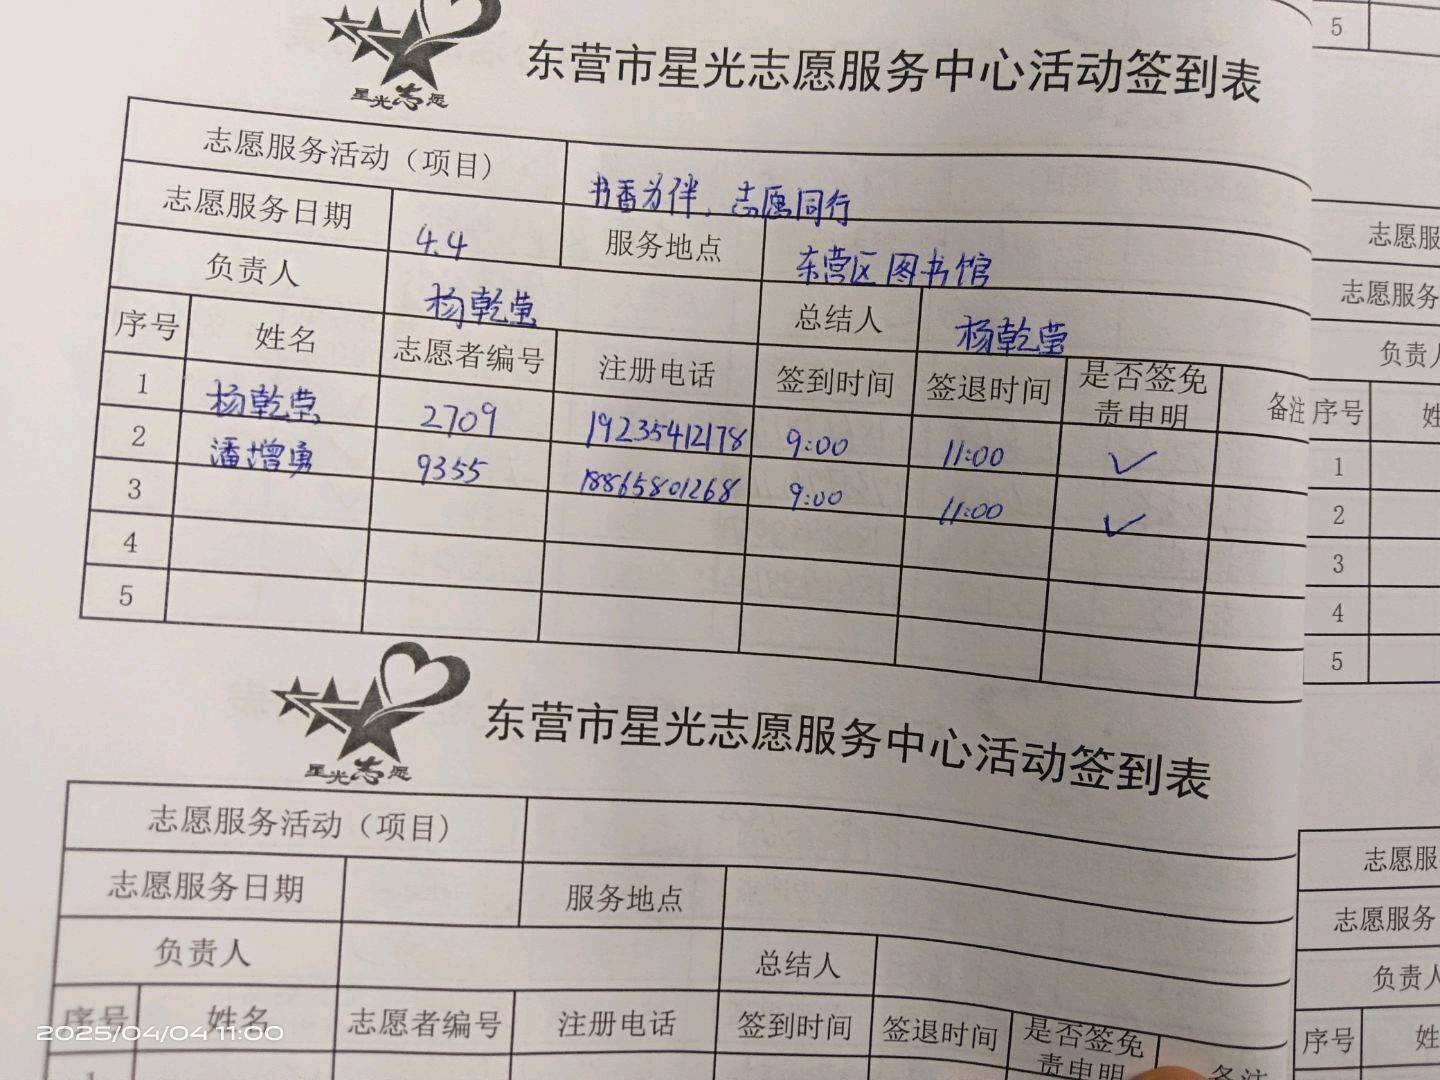 星光志愿
东营市星光志愿服务中心活动签到表
志愿服务活动（项目） 书香为伴，志愿同行
志愿服务日期 4.4 服务地点 东营区图书馆
负责人 杨乾莹 总结人 杨乾莹
序号 姓名 志愿者编号 注册电话 签到时间 签退时间 是否签免责申明 备注
1 杨乾莹 2709 19235412178 9:00 11:00 ✓
2 潘增勇 9355 18865801268 9:00 11:00 ✓
3
4
5
星光志愿
东营市星光志愿服务中心活动签到表
志愿服务活动（项目）
志愿服务日期 服务地点
负责人 总结人
序号 姓名 志愿者编号 注册电话 签到时间 签退时间 是否签免责申明 备注
1
2025/04/04 11:00
5
志愿服
志愿服务
负责人
序号 姓
1
2
3
4
5
志愿服
志愿服务
负责人
序号 姓